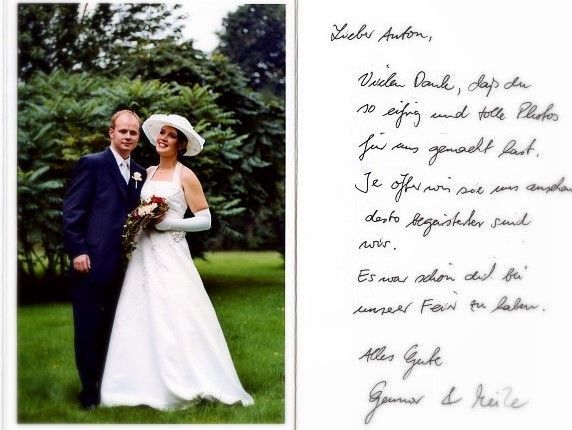 Lieber Anton,
Vielen Dank, daß du
so eifrig und tolle Photos
für uns gemacht hast.
Je öfter wir sie uns anschau
desto begeisterter sind
wir.
Es war schön dich bei
unserer Feier zu haben.
Alles Gute
Gunnar & Meike